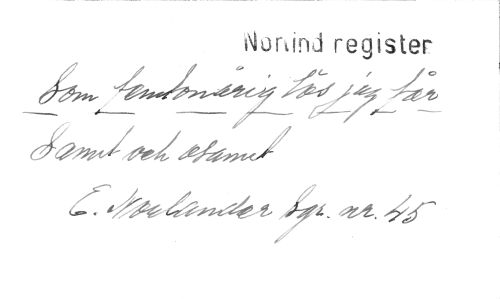 Norlind register
Som femtonårig lös jag får
Samt och osamt
E. Norlander Sgr. nr. 45